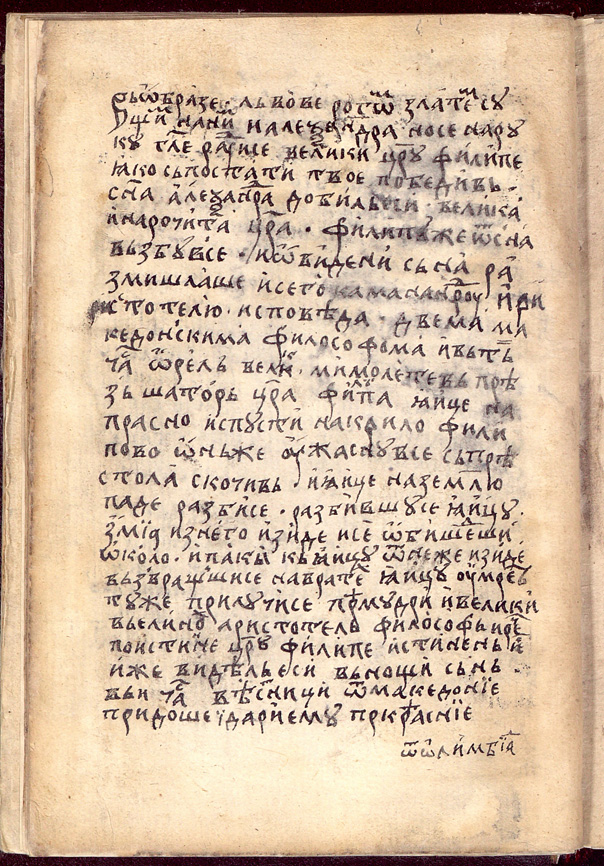 рьѡбразе · львове рогѡⷨ златеⷨ су
щїⷨ на нꙗ и алеѯанⷣра носе на ру
ку тл҃е рⷱаⷩ҇ше велики цр҃у филипе
ꙗко сьпостати твое победивь ·
сн҃а алеѯанⷣра добиль еси · велика
и нарочита цр҃а · филипⷤуже ѿ сна
вьзбувсе · и ѿ видени сьна ра
змишлаше и сето
стотелю · исповѣда · двема ма
кедонскима философома и вьтⷯь
ча҃ ѡрель велиⷦ · мимолетевь прѣ
зь шаторь цр҃а филⷧпа ꙗице на
прасно испусти на крило фили
пово ѡнь же оужаснувсе сь прѣ
стола скочивь · и ꙗице на землю
паде разбисе · разбившусе ꙗицу ·
змїа из него изиде и се ѡбишеⷣши
ѡколо · и паки кь ꙗицу ѿ неже изиде
вьзвращшисе на вратеⷯ ꙗицу оумреⷮ
ту же прилучисе прⷨѣмудри и велики
вьелинѡⷯ аристотель философь и реⷱ҇
поистине цр҃у филипе истинень е҇
иже видѣль еси вь нощи сьнь ·
вьи ча҃ вѣсⷮници ѿ македонїе
придоше и дарїе му прⷣкѣраснїе
ѿ ѡлимбїаⷣ